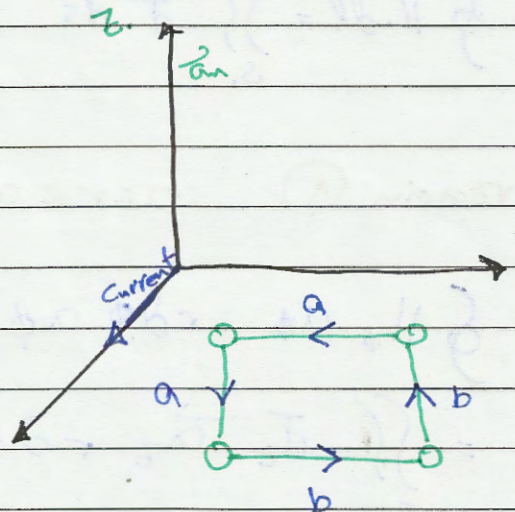 z.
Current
a
a
b
b